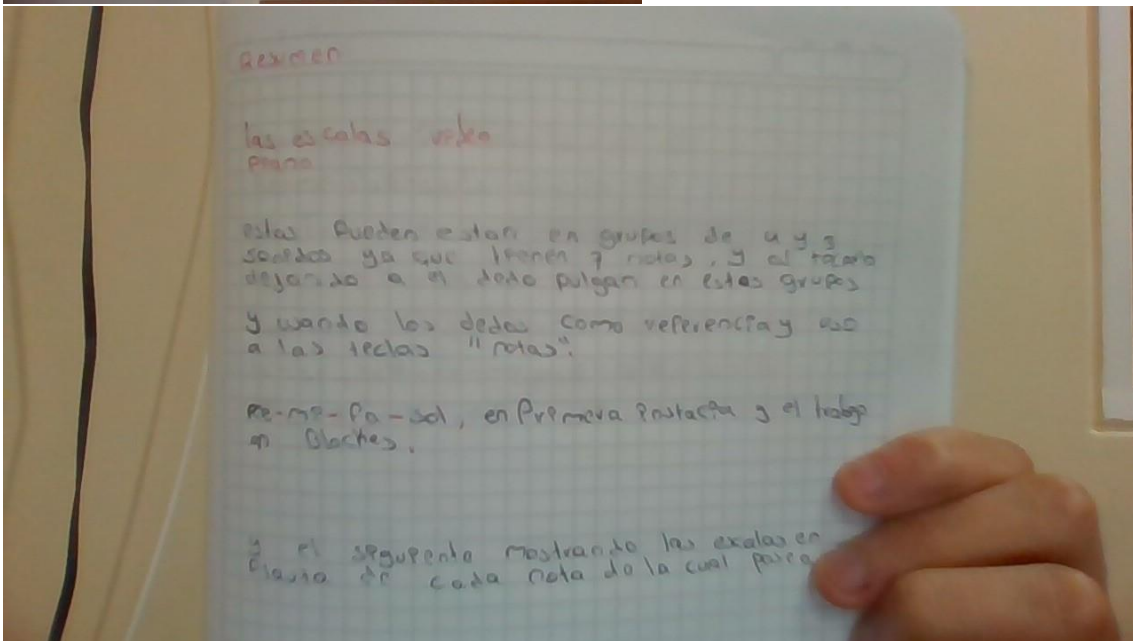 Resumen
las escalas video
Piano
estas Pueden estan en grupos de 4 y 3
ya que tienen 7 notas, y al
dejando a el dedo pulgan en estos grupos
y usando los dedos como referencia y eso
a las teclas "notas".
Re-mi-Fa-sol, en Primera y el trabajo
en Bloches.
y el mostrando las escalas en
de cada nota de la cual